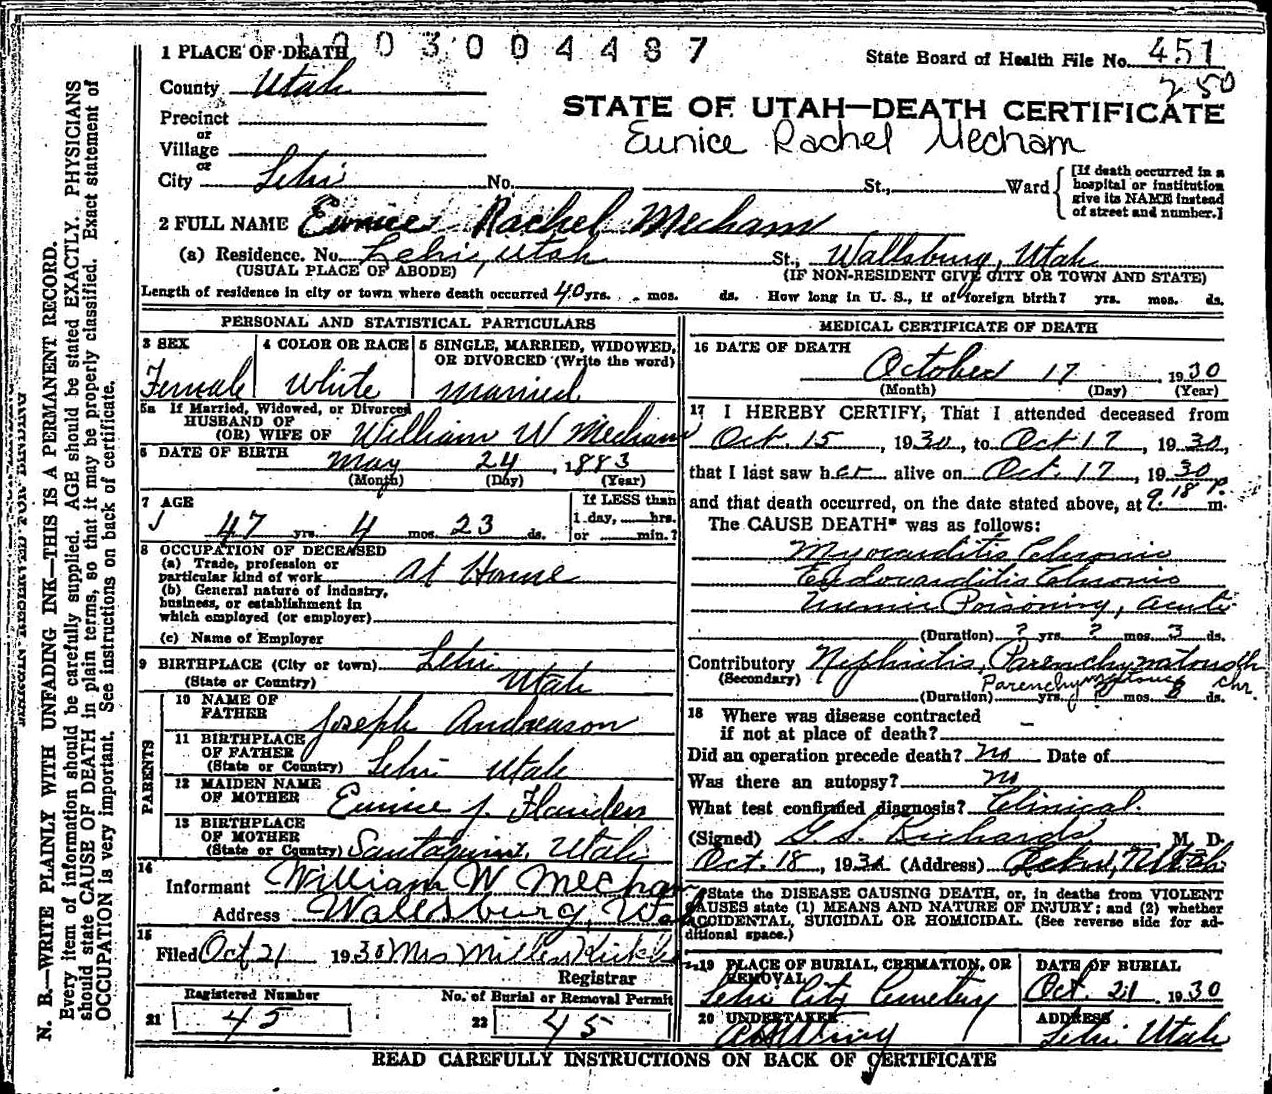 1003004487
1 PLACE OF DEATH
State Board of Health File No. 451
County Utah
250
Precinct
STATE OF UTAH—DEATH CERTIFICATE
or
Village
Eunice Rachel Mecham
or
City Lehi No. St., Ward
[If death occurred in a hospital or institution give its NAME instead of street and number.]
2 FULL NAME Eunice Rachel Mecham
(a) Residence. No. Lehi, Utah St., Wallsburg, Utah
(USUAL PLACE OF ABODE) (IF NON-RESIDENT GIVE CITY OR TOWN AND STATE)
Length of residence in city or town where death occurred 40 yrs. mos. ds. How long in U. S., if of foreign birth? yrs. mos. ds.
PERSONAL AND STATISTICAL PARTICULARS
3 SEX
Female
4 COLOR OR RACE
White
5 SINGLE, MARRIED, WIDOWED, OR DIVORCED (Write the word)
Married
5a If Married, Widowed, or Divorced
HUSBAND OF
(OR) WIFE OF William W Mecham
6 DATE OF BIRTH May 24, 1883
(Month) (Day) (Year)
7 AGE
47 yrs. 4 mos. 23 ds.
If LESS than
1 day, hrs.
or min.?
8 OCCUPATION OF DECEASED
(a) Trade, profession or
particular kind of work At Home
(b) General nature of industry,
business, or establishment in
which employed (or employer)
(c) Name of Employer
9 BIRTHPLACE (City or town) Lehi
(State or Country) Utah
PARENTS
10 NAME OF
FATHER Joseph Andreason
11 BIRTHPLACE
OF FATHER
(State or Country) Lehi Utah
12 MAIDEN NAME
OF MOTHER Eunice J. Flanders
13 BIRTHPLACE
OF MOTHER
(State or Country) Santaquin, Utah
14
Informant William W Mecham
Address Wallsburg, Utah
15
Filed Oct 21 1930 Mrs
Registrar
Registered Number
21 45
No. of Burial or Removal Permit
22 45
MEDICAL CERTIFICATE OF DEATH
16 DATE OF DEATH
October 17 1930
(Month) (Day) (Year)
17 I HEREBY CERTIFY, That I attended deceased from
Oct. 15, 1930, to Oct 17, 1930,
that I last saw her alive on Oct. 17, 1930
and that death occurred, on the date stated above, at 9.18 P. m.
The CAUSE DEATH* was as follows:
Myocarditis Chronic
Endocarditis Chronic
Uremic Poisoning, acute
(Duration) ? yrs. ? mos. 3 ds.
Contributory Nephritis, Parenchymatous
(Secondary) Parenchymatous chr.
(Duration) yrs. mos. ds.
18 Where was disease contracted
if not at place of death? –
Did an operation precede death? no Date of
Was there an autopsy? no
What test confirmed diagnosis? Clinical.
(Signed) G. S. Richards M. D.
Oct. 18, 193 (Address) Lehi, Utah
*State the DISEASE CAUSING DEATH, or, in deaths from VIOLENT
CAUSES state (1) MEANS AND NATURE OF INJURY; and (2) whether
ACCIDENTAL, SUICIDAL OR HOMICIDAL. (See reverse side for ad-
ditional space.)
19 PLACE OF BURIAL, CREMATION, OR REMOVAL
Lehi City Cemetery
DATE OF BURIAL
Oct. 21 1930
20 UNDERTAKER
ADDRESS
Lehi Utah
READ CAREFULLY INSTRUCTIONS ON BACK OF CERTIFICATE
MARGIN RESERVED FOR BINDING
N. B.—WRITE PLAINLY WITH UNFADING INK—THIS IS A PERMANENT RECORD.
Every item of information should be carefully supplied. AGE should be stated EXACTLY. PHYSICIANS
should state CAUSE OF DEATH in plain terms, so that it may be properly classified. Exact statement of
OCCUPATION is very important. See instructions on back of certificate.